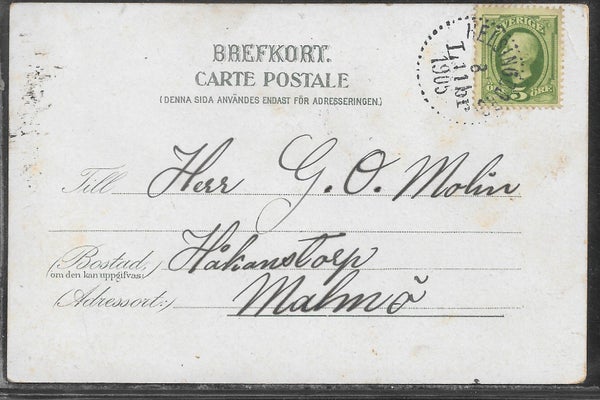 BREFKORT.
CARTE POSTALE
(DENNA SIDA ANVÄNDES ENDAST FÖR ADRESSERINGEN.)
SVERIGE
5 ÖRE
8
1905
Till Herr G. O. Molin
(Bostad,) Håkanstorp
om den kan uppgifvas
(Adressort:) Malmö